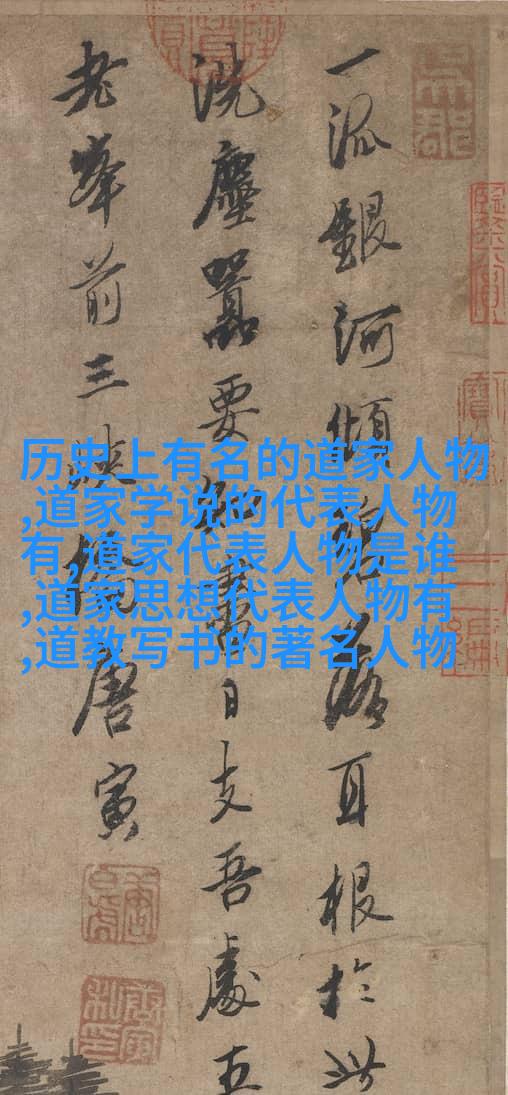 历史上有名的道家人物
,道家学说的代表人物
有,道家代表人物是谁
,道家思想代表人物有
,道教写书的著名人物
一派銀河傾碧落耳根於此
洗塵囂要知盡日支吾處五
老峯前三峽橋唐寅